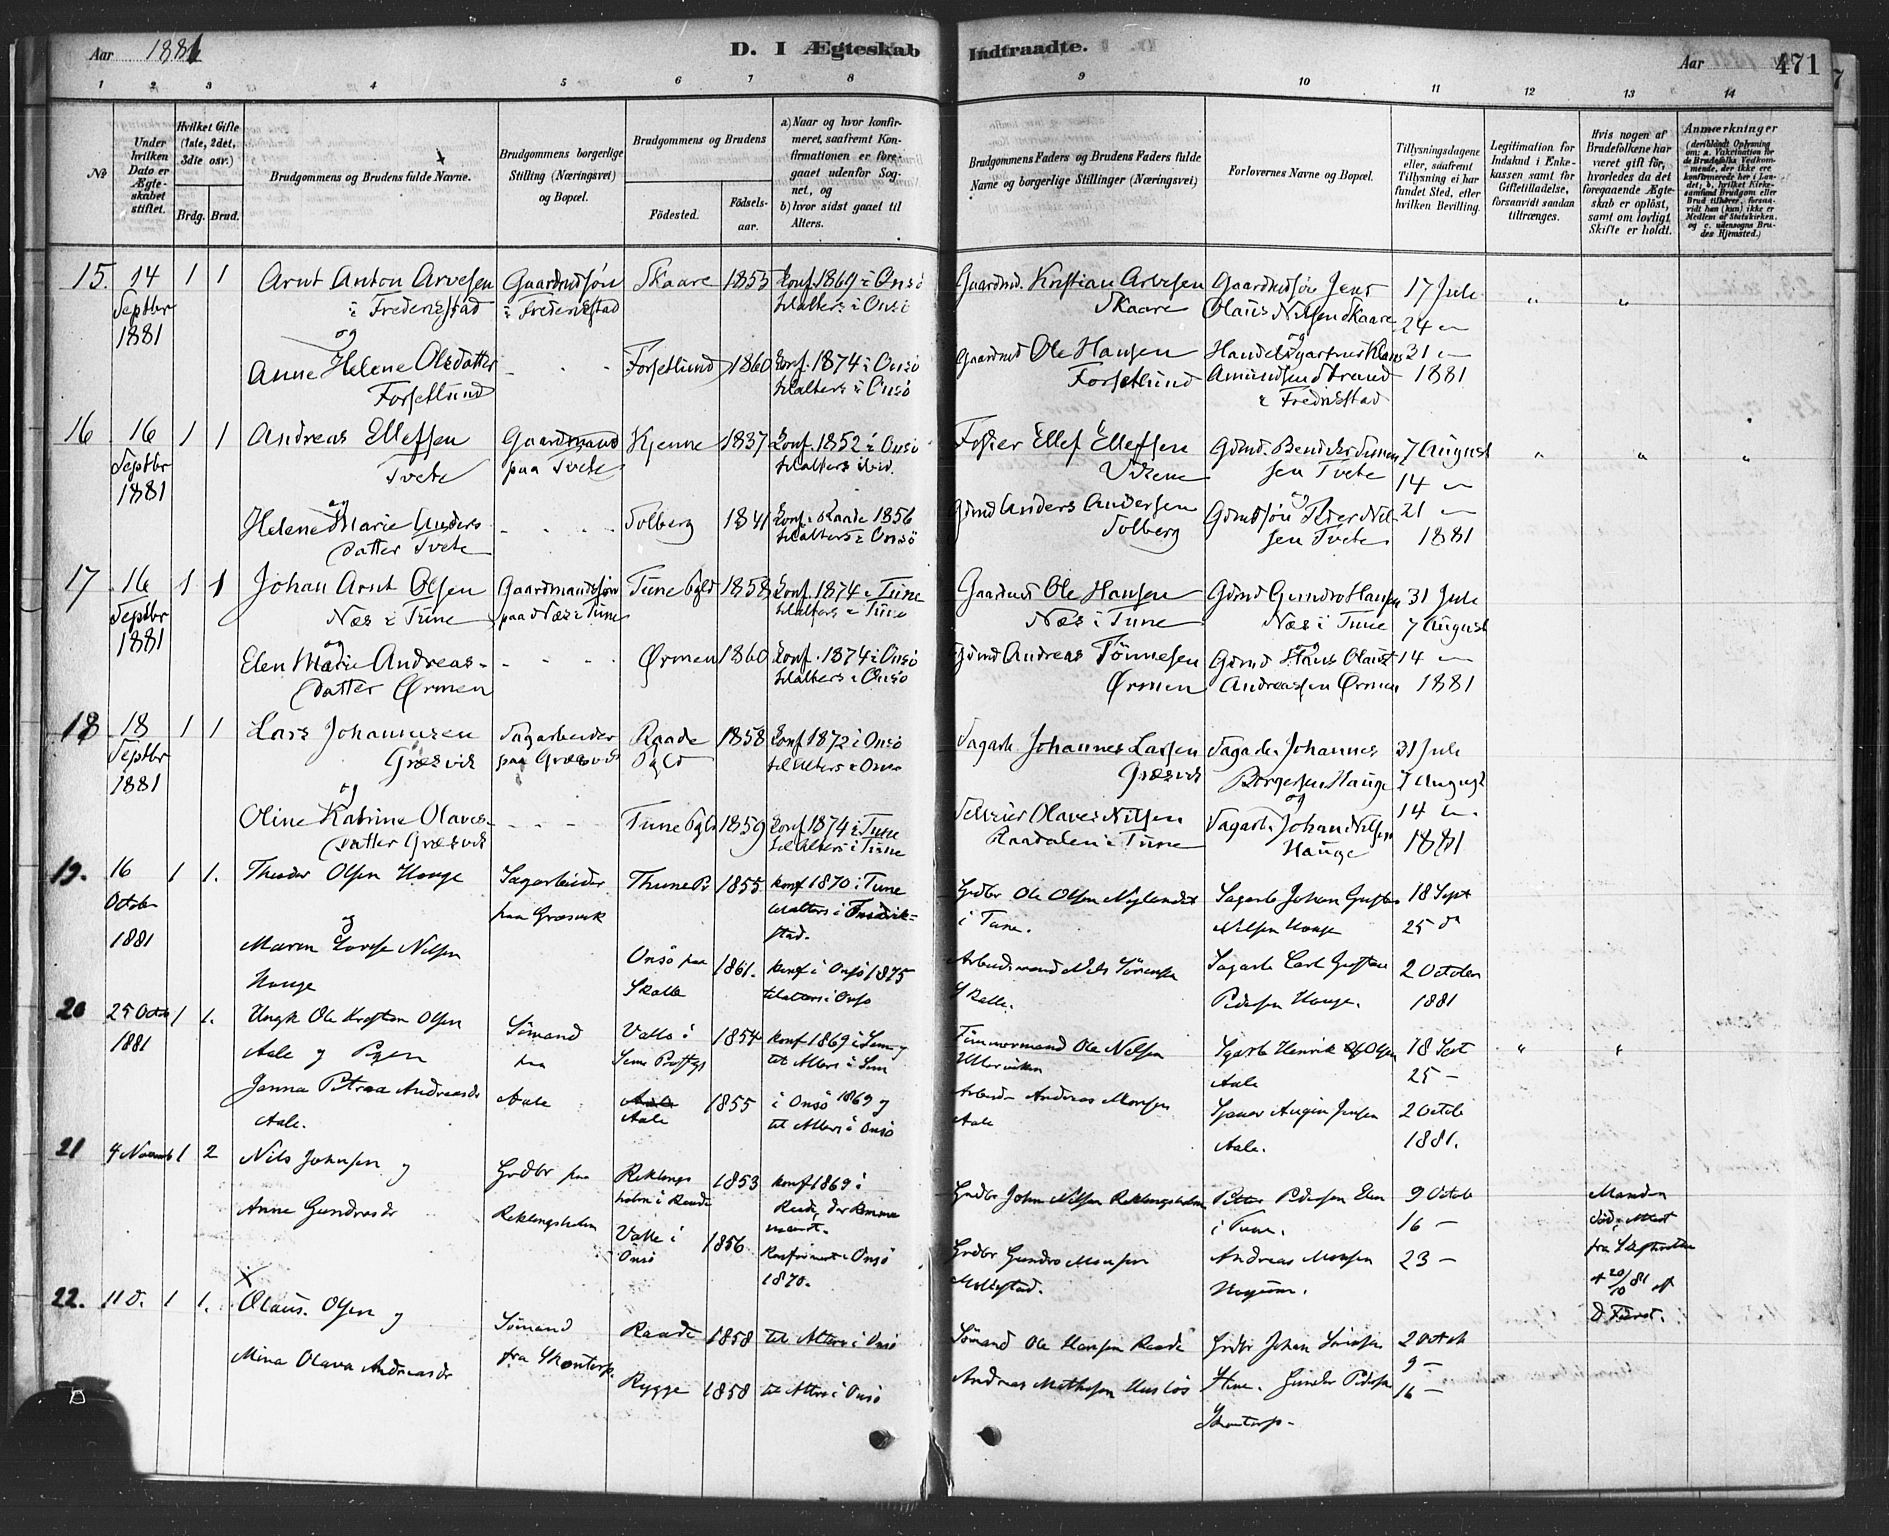 Aar 1881
D. I Ægteskab
Indtraadte.
Aar
471
1 2 3 4 5 6 7 8 9 10 11 12 13 14
No
Under hvilken Dato er Ægteskabet stiftet.
Hvilket Gifte (1ste, 2det, 3die osv.)
Brdg. Brud.
Brudgommens og Brudens fulde Navne.
Brudgommens borgerlige Stilling (Næringsvei) og Bopæl.
Brudgommens og Brudens
Födested.
Födselsaar.
a) Naar og hvor konfirmeret, saafremt Konfirmationen er foregaaet udenfor Sognet, og
b) hvor sidst gaaet til Alters.
Brudgommens Faders og Brudens Faders fulde Navne og borgerlige Stillinger (Næringsvei)
Forlovernes Navne og Bopæl.
Tillysningsdagene eller, saafremt Tillysning ei har fundet Sted, efter hvilken Bevilling.
Legitimation for Indskud i Enkekassen samt for Giftetilladelse, forsaavidt saadan tiltrænges.
Hvis nogen af Brudefolkene har været gift før, hvorledes da det foregaaende Ægteskab er opløst, samt om lovligt Skifte er holdt.
Anmærkninger
(deriblandt Oplysning om: a. Vakcination for de Brudefolks Vedkommende, der ikke ere konfirmerede her i Landet; b. hvilket Kirkesamfund Brudgom eller Brud tilhører, forsaavidt han (hun) ikke er Medlem af Statskirken, og c. udensogns Brudes Hjemsted.)
15. 14 Septbr 1881 1 1
Arnt Anton Arvesen
i Frederikstad
og
Anne Helene Olsdatter
Forsetlund
Gaardmdsøn
i Frederikstad
Skaare 1855 Konf. 1869 i Onsö
til Alters i Onsö
Forsetlund 1860 Konf. 1874 i Onsö
til Alters i Onsö
Gaardmd. Kristian Arvesen
Skaare
Gaardmd Ole Hansen
Forsetlund
Gaardmdsøn Jens
Olaus Nilsen Skaare
og
Handelsgartner Klaus
Amundsen Strand
i Fredrikstad
17 Juli
24 "
31 "
1881
16 16 Septbr 1881 1 1
Andreas Elleffsen
Tvete
og
Helene Marie Anders
datter Tvete
Gaardmand
paa Tvete
Kjenne 1837 Konf. 1852 i Onsö
til Alters ibid.
Solberg 1841 Konf. i Raade 1856
til Alters i Onsö
Ellef Elleffsen
Vikene
Gdmd Anders Andersen
Solberg
Gdmd. Bendik Simen
sen Tvete
og
Gdmdsön Peter Nil
sen Tvete
7 August
14 "
21 "
1881
17 16 Septbr 1881 1 1
Johan Arnt Olsen
Næs i Tune
og
Elen Marie Andreas-
datter Ørmen
Gaardmandssön
paa Næs i Tune
Tune Pgld 1858 Konf. 1874 i Tune
til Alters i Tune
Ørmen 1860 Konf. 1874 i Onsö
til Alters i Onsö
Gaardmd Ole Hansen
Næs i Tune
Gdmd Andreas Tönnesen
Ørmen
Gdmd Gundro Hansen
Næs i Tune
og
Gdmd Hans Olaus
Andreassen Ørmen
31 Juli
7 August
14 "
1881
18 18 Septbr 1881 1 1
Lars Johannesen
Græsvik
og
Oline Katrine Olaves-
datter Græsvik
Sagarbeider
paa Græsvik
Raade
Pgld 1858 Konf 1872 i Onsö
til Alters i Onsö
Tune Pgld 1859 Konf 1874 i Tune
til Alters i Tune
Sagarb. Johannes Larsen
Græsvik
Selveier Olaves Nilsen
Raadalen i Tune
Sagarb. Johannes
Borgersen Hauge
og
Sagarb. Johan Nilsen
Hauge
31 Juli
7 August
14 "
1881
19. 16 October 1881 1 1.
Theodor Olsen Hauge
og
Maren Lovise Nilsen
Hauge
Sagarbeider
paa Græsvik
Thune P. 1855 konf 1870 i Tune
til Alters i Fredrik-
stad.
Onsö paa
Skalle 1861. konf i Onsö 1875
til alters i Onsö
Grdbr Ole Olsen Nylandet
i Tune.
Arbeidsmand Nils Sörensen
Skalle.
Sagarb Johan Gustav
Nilsen Hauge
Sagarb Carl Gustav
Pedersen Hauge.
18 Sept
25 d
2 October
1881
20 25 Octob 1881 1 1.
Ungk Ole Kristian Olsen
Aale og Pigen
Janna Petrea Andreasdr
Aale.
Sömand
paa
Aale
Vallö i
Sems Prstgj 1854 konf 1869 i Sem og
til Alters i Sem
Aale 1855 i Onsö 1869 og
til Alters i Onsö
Tömmermand Ole Nilsen
Ulleviken
Arbeider Andreas Monsen
Aale
Sgarb Henrik Olsen
Aale
August Jensen
Aale.
18 Sept
25 –
2 Octob
1881.
21 4 Novemb 1 2
Nils Johnsen og
Anne Gundrosdr
Grdbr paa
Reklingsholm
Reklings
holm i Raade 1853 konf 1869 i
Raade,
Valle i
Onsö 1856 Konfirmert i Onsö
1870.
Grdbr John Nilsen Reklingsholm
Grdbr Gundro Monsen
Mellegaard.
Petter Pedersen Elen
i Tune.
Andreas Monsen
9 Octob
16 –
23 –
Manden
död, Attest
fra Skifteretten
af 20/10 81
22. 11 d. 1 1.
X
Olaus Olsen og
Mina Olava Andreasdr
Sömand
fra Skontorp.
Raade 1858 til Alters i Onsö
Rygge 1858 til Alters i Onsö
Sömand Ole Hansen Raade
Andreas Mathesen Huslös
Grdbr Johan
Gunder Pedersen
Skontorp.
2 Octob
9 –
16 –